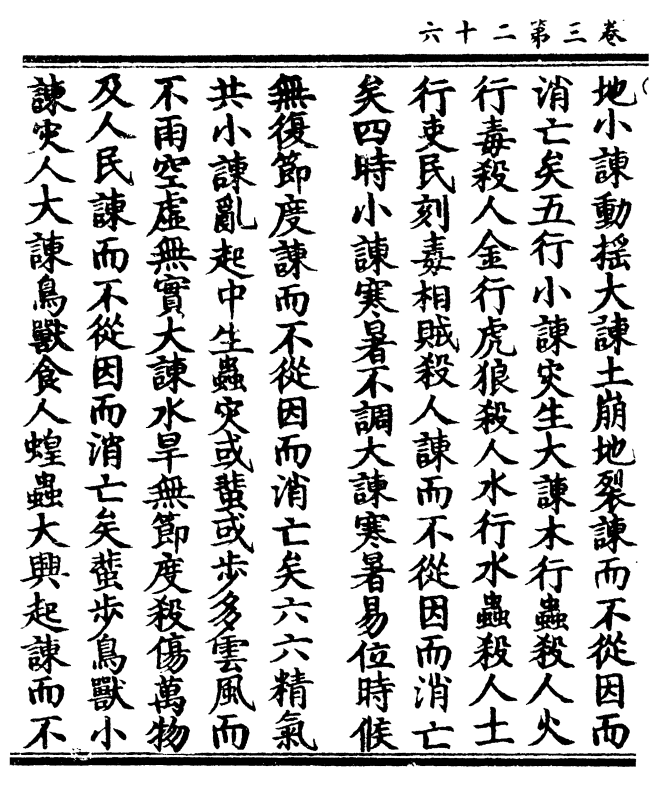 卷三第二十六
地小諫動摇大諫土崩地裂諫而不從因而
消亡矣五行小諫灾生大諫木行蟲殺人火
行毒殺人金行虎狼殺人水行水蟲殺人土
行吏民刻毒相賊殺人諫而不從因而消亡
矣四時小諫寒暑不調大諫寒暑易位時候
無復節度諫而不從因而消亡矣六六精氣
共小諫亂起中生蟲灾或蜚或步多雲風而
不雨空虛無實大諫水旱無節度殺傷萬物
及人民諫而不從因而消亡矣蜚步鳥獸小
諫灾人大諫鳥獸食人蝗蟲大興起諫而不